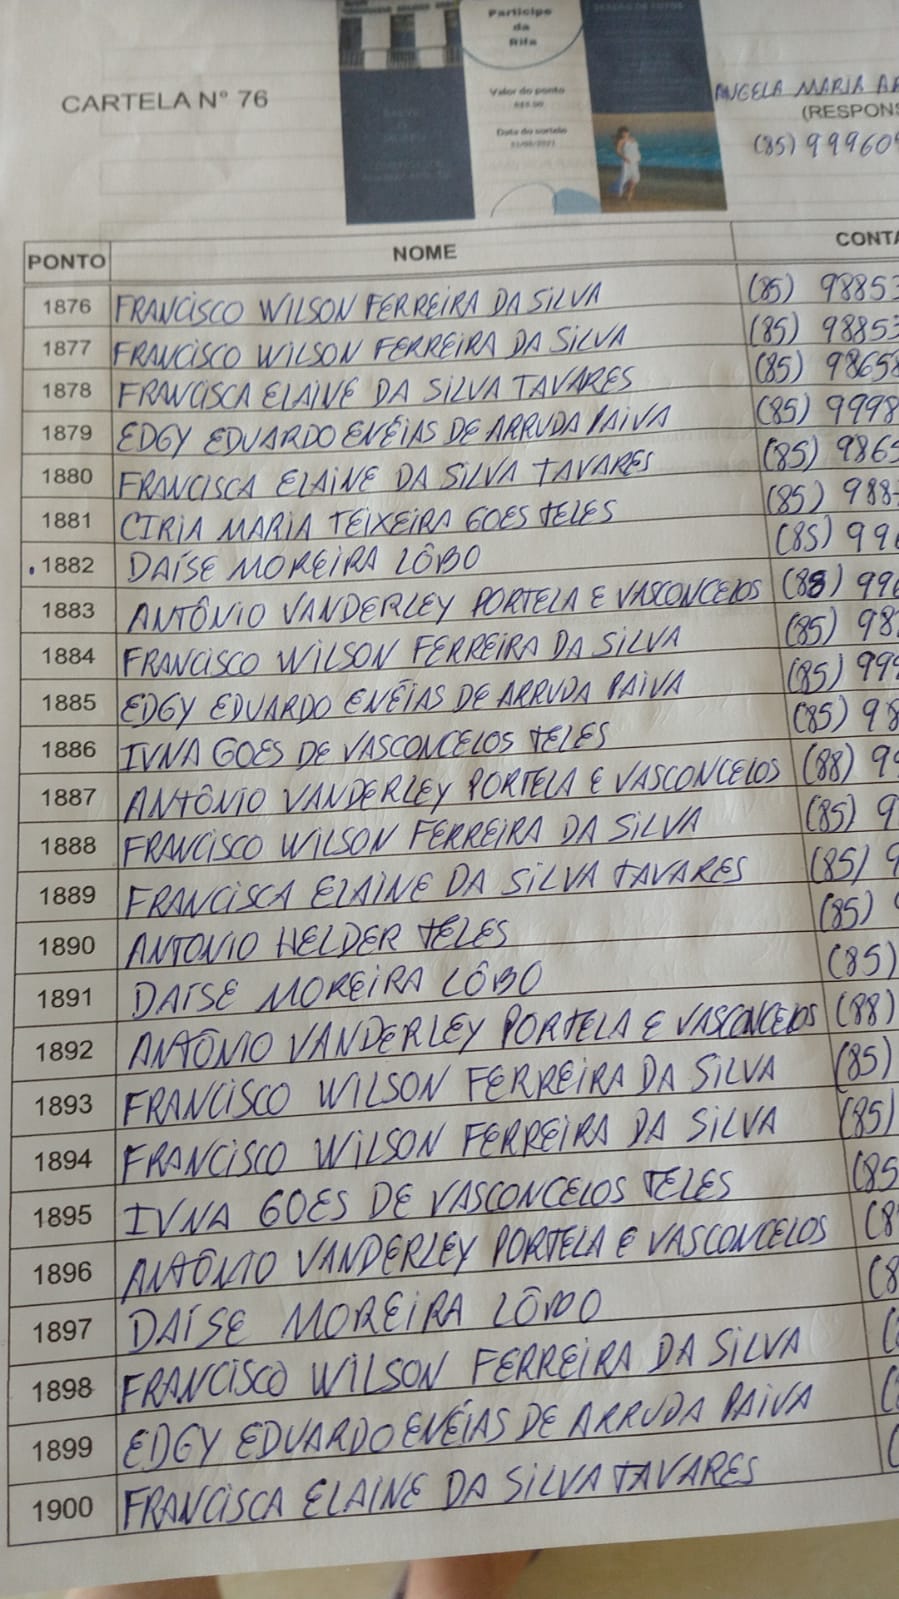 CARTELA N° 76
Participe
da
Rifa
Valor do ponto
Data do sorteio
ANGELA MARIA
(RESPON
(85) 99960
PONTO NOME CONTA
1876 FRANCISCO WILSON FERREIRA DA SILVA (85) 98853
1877 FRANCISCO WILSON FERREIRA DA SILVA (85) 98853
1878 FRANCISCA ELAINE DA SILVA TAVARES (85) 98658
1879 EDGY EDUARDO ENÉIAS DE ARRUDA PAIVA (85) 9998
1880 FRANCISCA ELAINE DA SILVA TAVARES (85) 9865
1881 CIRIA MARIA TEIXEIRA GOES TELES (85) 988
1882 DAÍSE MOREIRA LÔBO (85) 996
1883 ANTÔNIO VANDERLEY PORTELA E VASCONCELOS (88) 996
1884 FRANCISCO WILSON FERREIRA DA SILVA (85) 98
1885 EDGY EDUARDO ENÉIAS DE ARRUDA PAIVA (85) 999
1886 IVNA GOES DE VASCONCELOS TELES (85) 98
1887 ANTÔNIO VANDERLEY PORTELA E VASCONCELOS (88) 99
1888 FRANCISCO WILSON FERREIRA DA SILVA (85) 9
1889 FRANCISCA ELAINE DA SILVA TAVARES (85) 9
1890 ANTONIO HELDER TELES (85)
1891 DAISE MOREIRA LÔBO (85)
1892 ANTÔNIO VANDERLEY PORTELA E VASCONCELOS (88)
1893 FRANCISCO WILSON FERREIRA DA SILVA (85)
1894 FRANCISCO WILSON FERREIRA DA SILVA (85)
1895 IVNA GOES DE VASCONCELOS TELES (85
1896 ANTÔNIO VANDERLEY PORTELA E VASCONCELOS (8
1897 DAÍSE MOREIRA LÔBO (8
1898 FRANCISCO WILSON FERREIRA DA SILVA (
1899 EDGY EDUARDO ENÉIAS DE ARRUDA PAIVA (
1900 FRANCISCA ELAINE DA SILVA TAVARES (